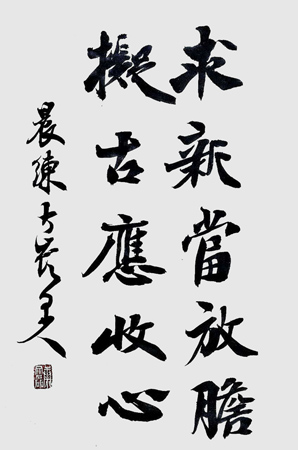 求新當放膽
擬古應收心
晨練
人